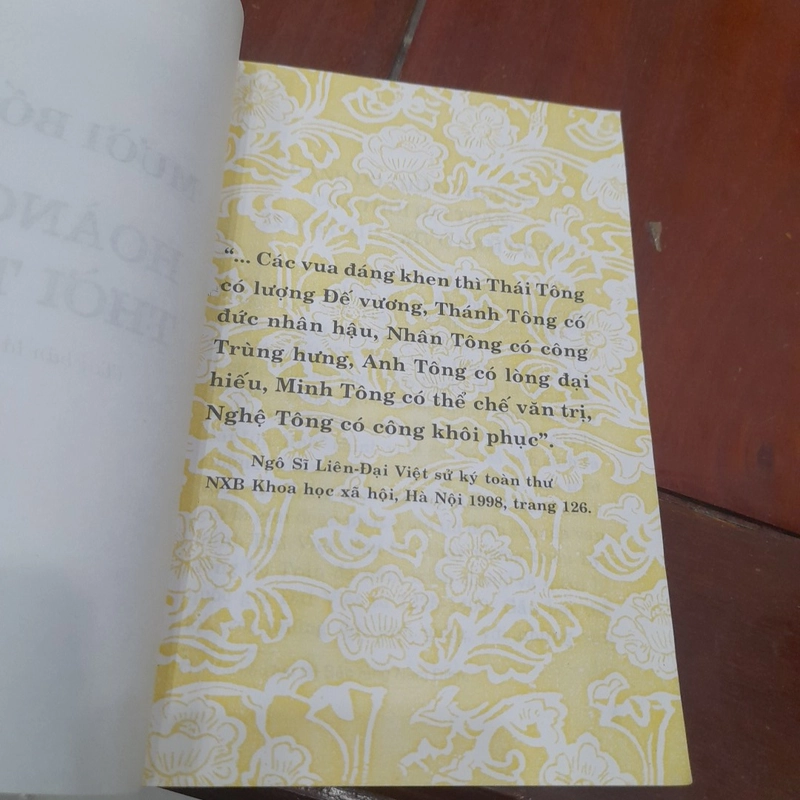 “... Các vua đáng khen thì Thái Tông
có lượng Đế vương, Thánh Tông có
đức nhân hậu, Nhân Tông có công
Trùng hưng, Anh Tông có lòng đại
hiếu, Minh Tông có thể chế văn trị,
Nghệ Tông có công khôi phục”.
Ngô Sĩ Liên-Đại Việt sử ký toàn thư
NXB Khoa học xã hội, Hà Nội 1998, trang 126.